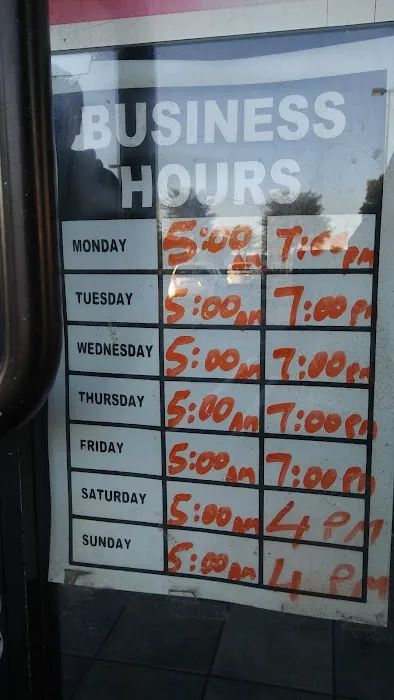 BUSINESS
HOURS
MONDAY 5:00 AM 7:00 PM
TUESDAY 5:00 AM 7:00 PM
WEDNESDAY 5:00 AM 7:00 PM
THURSDAY 5:00 AM 7:00 PM
FRIDAY 5:00 AM 7:00 PM
SATURDAY 5:00 AM 4 PM
SUNDAY 5:00 AM 4 PM